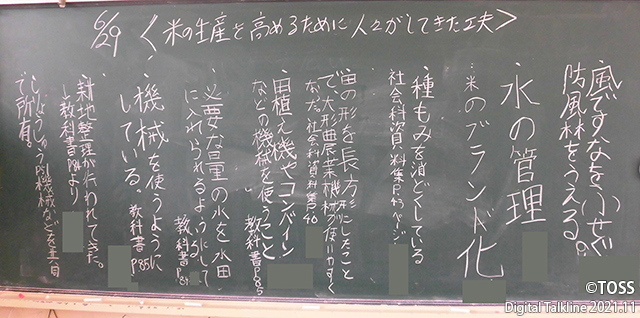 6/29 〈米の生産を高めるために人々がしてきた工夫〉
風ですなをふせぐ
防風林をうえる。
水の管理
・米のブランド化
・種もみを消どくしている
社会科資料集P.43ページ
・田の形を長方形にしたこと
で大形農業機械が使いやすく
なった。社会科資料集P.40
・田植え機やコンバイン
などの機械を使うこと
教科書P.85
・必要な量の水を水田
に入れられるようにして
いる。教科書P.84
・機械を使うように
している。教科書P.85
・耕地整理が行われてきた。
教科書P84より
機械などを共同
で所有。
©TOSS
Digital Talkline 2021.11